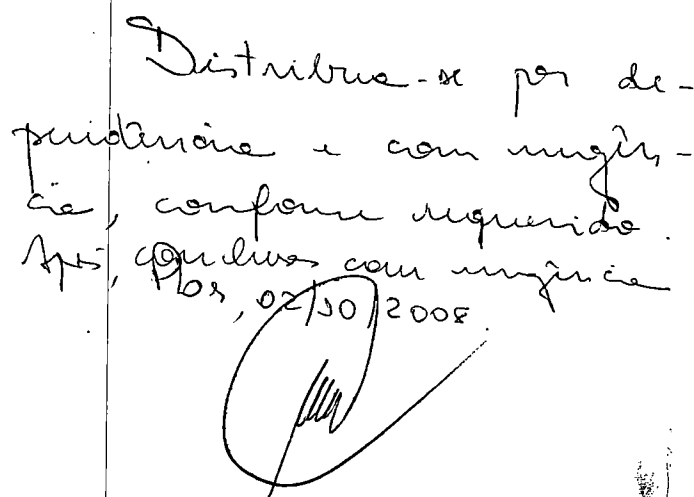 Distribua-se por de-
pendência e com urgên-
cia, conforme requerido.
Após, conclusos com urgência
02/10/2008